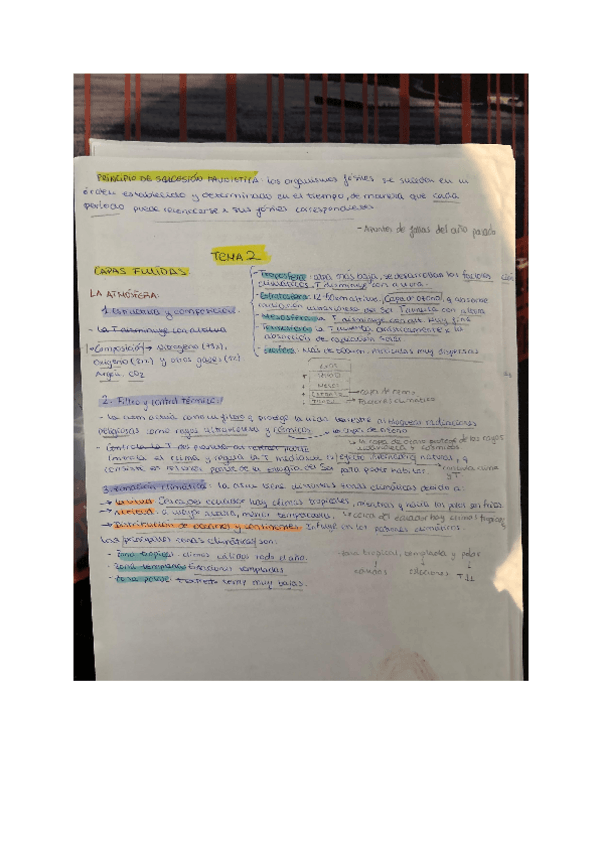 PRINCIPIO DE SUCESIÓN FAUNÍSTICA: los organismos fósiles se suceden en un
órden establecido y determinado en el tiempo, de manera que cada
período puede reconocerse x sus fósiles correspondientes
- Apuntes de fallas del año pasado
TEMA 2
CAPAS FLUIDAS
LA ATMÓSFERA:
1. Estructura y composición.
- La T disminuye con altitud
- Composición → Nitrógeno (78%),
Oxígeno (21%) y otros gases (1%)
Argón, CO2
- Troposfera: capa más baja, se desarrollan los factores
climáticos. T disminuye con altura.
- Estratosfera: Capa de ozono, y absorbe
radiación ultravioleta del Sol. T aumenta con altura
- Mesosfera: la T disminuye con alt. Muy fina
- Termosfera: la T aumenta drásticamente x la
absorción de radiación solar
- Exosfera: más externa.
EXOS
TERMO
MESOS
ESTRATO → capa de ozono
TROPO → Factores climáticos
2. Filtro y control térmico:
- La atm actúa como un filtro y protege la vida terrestre al bloquear radiaciones
peligrosas como rayos ultravioleta y cósmicos → la capa de ozono
la capa de ozono protege de los rayos
ultravioleta + cósmicos
- Controla la T del planeta
controla el clima y regula la T mediante el efecto invernadero natural, q
consiste en retener parte de la energía del Sol para poder habitar
3. Variación climática: la atm tiene distintas zonas climáticas debido a:
→ Latitud: Cerca del ecuador hay climas tropicales, mientras q hacia los polos son fríos.
→ Altitud: a mayor altura, menor temperatura. → cerca del ecuador hay climas tropicales
→ Distribución de océanos y continentes: Influye en los patrones climáticos.
Las principales zonas climáticas son:
- Zona tropical: climas cálidos todo el año.
- Zona templada: Estaciones templadas
- Zona polar: temp muy bajas.
zona tropical, templada y polar
estaciones
T↓↓